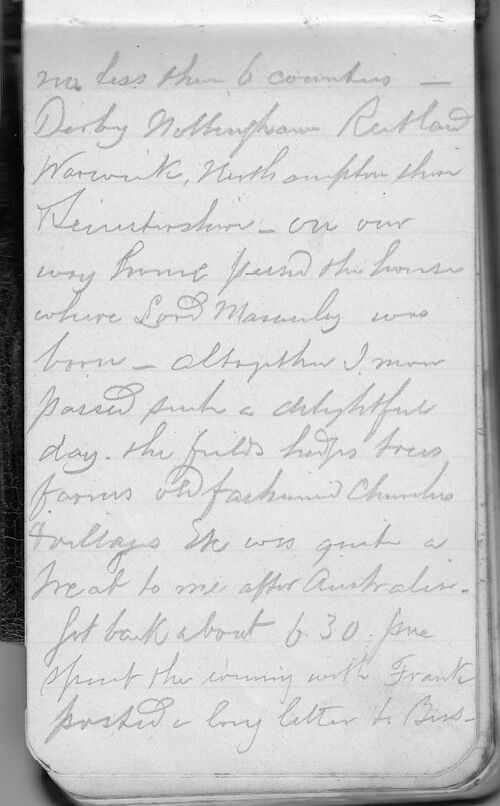 no less than 6 counties —
Derby Nottingham Rutland
Warwick, Northamptonshire
Leicestershire — on our
way home passed the house
where Lord Macauley was
born — altogether I never
passed such a delightful
day. the fields hedges trees
farms old fashioned Churches
& villages &c was quite a
treat to me after Australia.
Got back about 6.30. pm
spent the evening with Frank
posted a long letter to Bess—